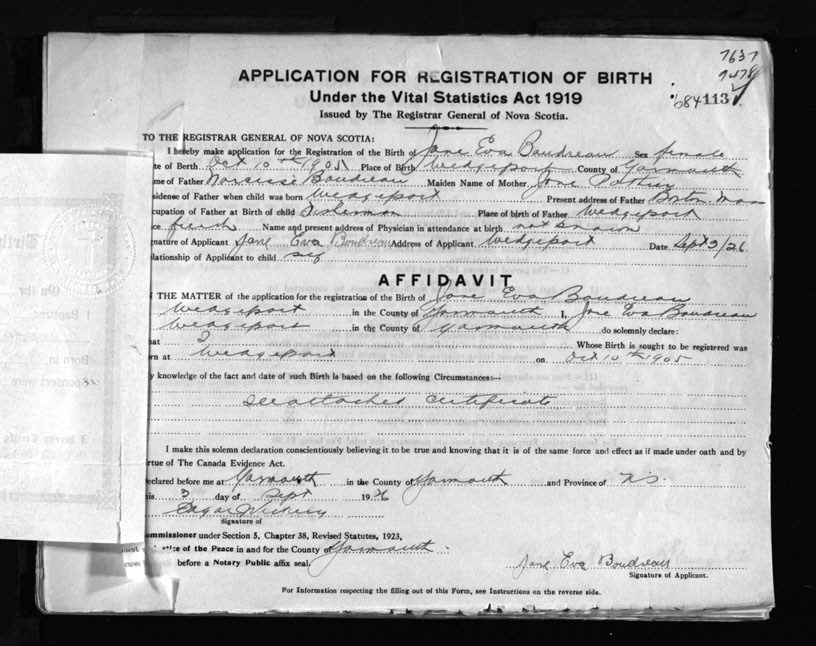 7637
9478
APPLICATION FOR REGISTRATION OF BIRTH
Under the Vital Statistics Act 1919
684113
Issued by The Registrar General of Nova Scotia.
TO THE REGISTRAR GENERAL OF NOVA SCOTIA:
I hereby make application for the Registration of the Birth of Jane Eva Boudreau Sex female
te of Berth Oct 10th 1905 Place of Birth Wedgeport County of Yarmouth
me of Father Narcisse Boudreau Maiden Name of Mother Jane Pothier
sidense of Father when child was born Wedgeport Present address of Father Boston Mass
cupation of Father at Birth of child Fisherman Place of birth of Father Wedgeport
ce french Name and present address of Physician in attendance at birth not known
gnature of Applicant Jane Eva Boudreau Address of Applicant Wedgeport Date Sept 3/26
lationship of Applicant to child self
AFFIDAVIT
THE MATTER of the application for the registration of the Birth of Jane Eva Boudreau
Wedgeport in the County of Yarmouth I, Jane Eva Boudreau
Wedgeport in the County of Yarmouth do solemnly declare:
at I Whose Birth is sought to be registered was
rn at Wedgeport on Oct 10th 1905
y knowledge of the fact and date of such Birth is based on the following Circumstances:--
See attached Certificate
I make this solemn declaration conscientiously believing it to be true and knowing that it is of the same force and effect as if made under oath and by
rtue of The Canada Evidence Act.
eclared before me at Yarmouth in the County of Yarmouth and Province of N.S.
his 3 day of Sept 1926
Edgar Vickery
Signature of
ommissioner under Section 5, Chapter 38, Revised Statutes, 1923,
stice of the Peace in and for the County of Yarmouth
before a Notary Public affix seal.
Jane Eva Boudreau
Signature of Applicant.
For Information respecting the filling out of this Form, see Instructions on the reverse side.